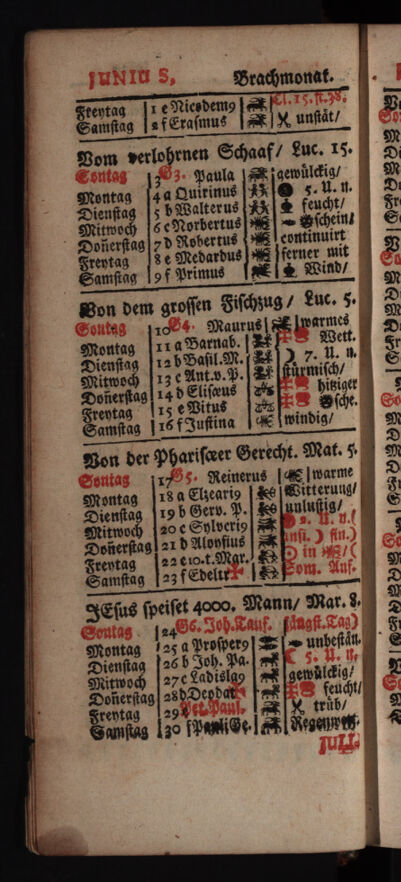 JUNIUS, Brachmonat.
Cl. 15. st. 38.
Freytag 1 e Nicodem9
Samstag 2 f Erasmus unstät/
Vom verlohrnen Schaaf/ Luc. 15.
Sontag 3 G3. Paula gewülckig/
Montag 4 a Quirinus 5. U. n.
Dienstag 5 b Walterus feucht/
Mitwoch 6 c Norbertus schein/
Doñerstag 7 d Robertus continuirt
Freytag 8 e Medardus ferner mit
Samstag 9 f Primus Wind/
Von dem grossen Fischzug/ Luc. 5.
Sontag 10 G4. Maurus warmes
Montag 11 a Barnab. Wett.
Dienstag 12 b Basil. M. ) 7. U. n.
Mitwoch 13 c Ant. v. P. stürmisch/
Doñerstag 14 d Elisæus hitziger
Freytag 15 e Vitus sche.
Samstag 16 f Justina windig/
Von der Pharisæer Gerecht. Mat. 5.
Sontag 17 G5. Reinerus warme
Montag 18 a Elzeari9 Witterung/
Dienstag 19 b Gerv. P. unlustig/
Mitwoch 20 c Sylveri9 2. U. n. (
Doñerstag 21 d Aloysius unsi. ) fin.)
Freytag 22 e 10. t. Mar. in /(
Samstag 23 f Edeltr. Som. Anf.
JEsus speiset 4000. Mann/ Mar. 8.
Sontag 24 G6. Joh. Tauf. (längst. Tag)
Montag 25 a Prosper9 unbestän.
Dienstag 26 b Joh. Pa. 5. U. n.
Mitwoch 27 c Ladisla9 gewülckig/
Doñerstag 28 d Deodat feucht/
Freytag 29 e Pet. Paul. trüb/
Samstag 30 f Pauli Ge. Regenwett.